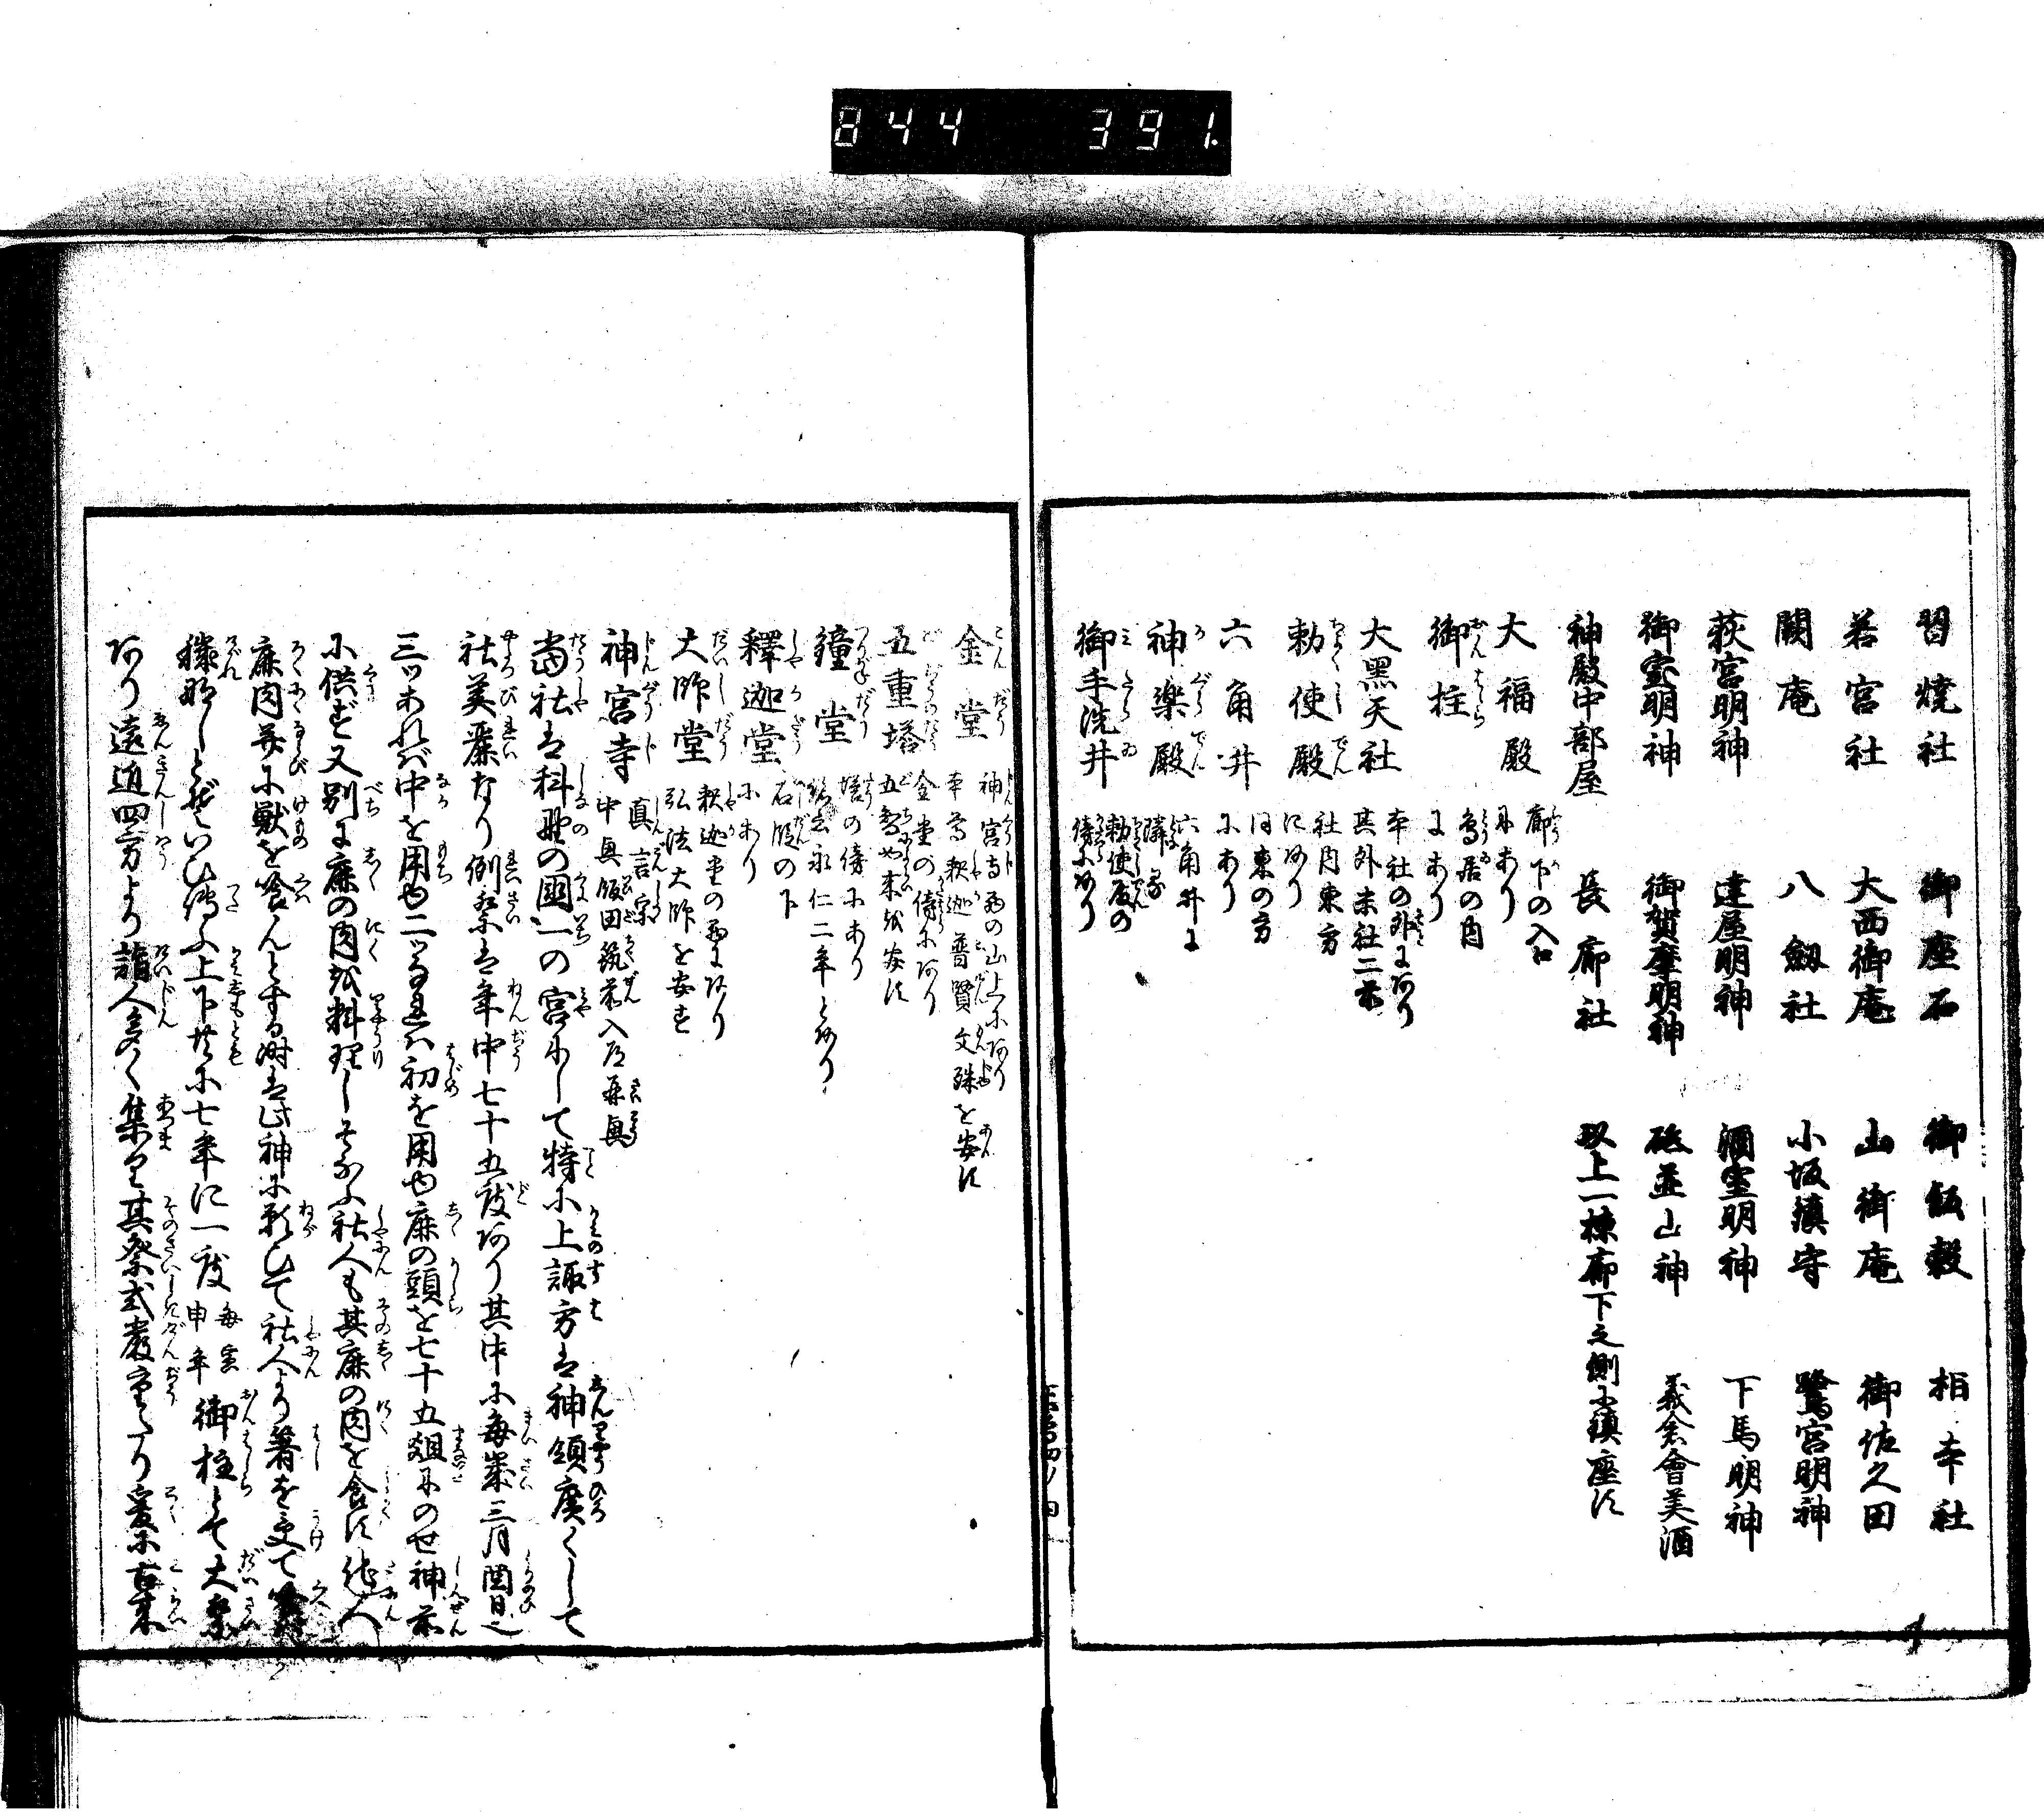 844 391.
習燒社 御座石 御飯殿 相本社
若宮社 大西御庵 山御庵 御佐久田
闕庵 八劔社 小坂鎮守 鷺宮明神
荻宮明神 達屋明神 酒室明神 下馬明神
御室明神 御賀摩明神 砥並山神 義会會美酒
神殿中部屋 長廊社 以上一棟廊下之側に鎮座す
大福殿 廊下の入口にあり
御柱 鳥居の内にあり
大黑天社 本社の外にあり其外末社二前
勅使殿 社内東方にあり
六角井 同東の方にあり
神楽殿 六角井に隣る
御手洗井 勅使殿の傍にあり
金堂 神宮寺西の山上にあり本尊釈迦普賢文殊を安す
五重塔 金堂の傍にあり五智如来を安す
鐘堂 塔の傍にあり銘云永仁二年とあり
釋迦堂 石階の下にあり
大師堂 釈迦堂の西にあり弘法大師を安す
神宮寺 真言宗中興飯田筑前入道再興
當社は科野の國一の宮にして特に上諏方は神領廣くして
社美麗なり例祭は年中七十五度あり其中に毎歳三月酉日也
三ツあれバ中を用ゆ二ツあれハ初を用ゆ鹿の頭を七十五俎にのせ神前
に供ず又別に鹿の肉を料理しそなふ社人も其鹿の肉を食す他人
鹿肉并に獣を喰んとする時は此神に祈ひて社人より箸を受て喰へ
穢なしとぞいひ傳ふ上下共に七年に一度 毎寅申年 御柱とて大祭
あり遠近四方より詣人多く集る其祭式嚴重たり爰に古来